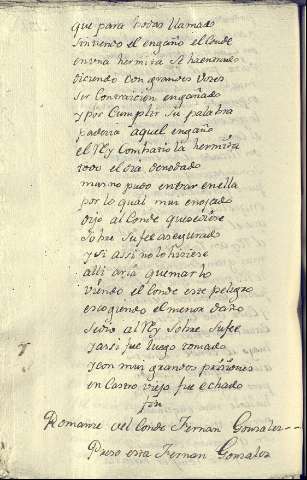 que para bodas llamado
sintiendo el engaño el Conde
en una hermita se ha entrado
diciendo con grandes voces
ser con traicion engañado
y por Cumplir su palabra
padecia aquel engaño
el Rey Combatio la hermita
todo el dia denodado
mas no pudo entrar en ella
por lo qual mui enojado
dijo al Conde que se diese
Sobre su fee asegurado
y si assi no lo hiciere
alli avia quemarlo
viendo el Conde este peligro
escogiendo el menor daño
se dio al Rey sobre su fee
y assi fue luego tomado
y con mui grandes prisiones
en Castro viejo fue echado
fin
Romance del Conde Fernan Gonzalez
Preso esta Fernan Gonzalez